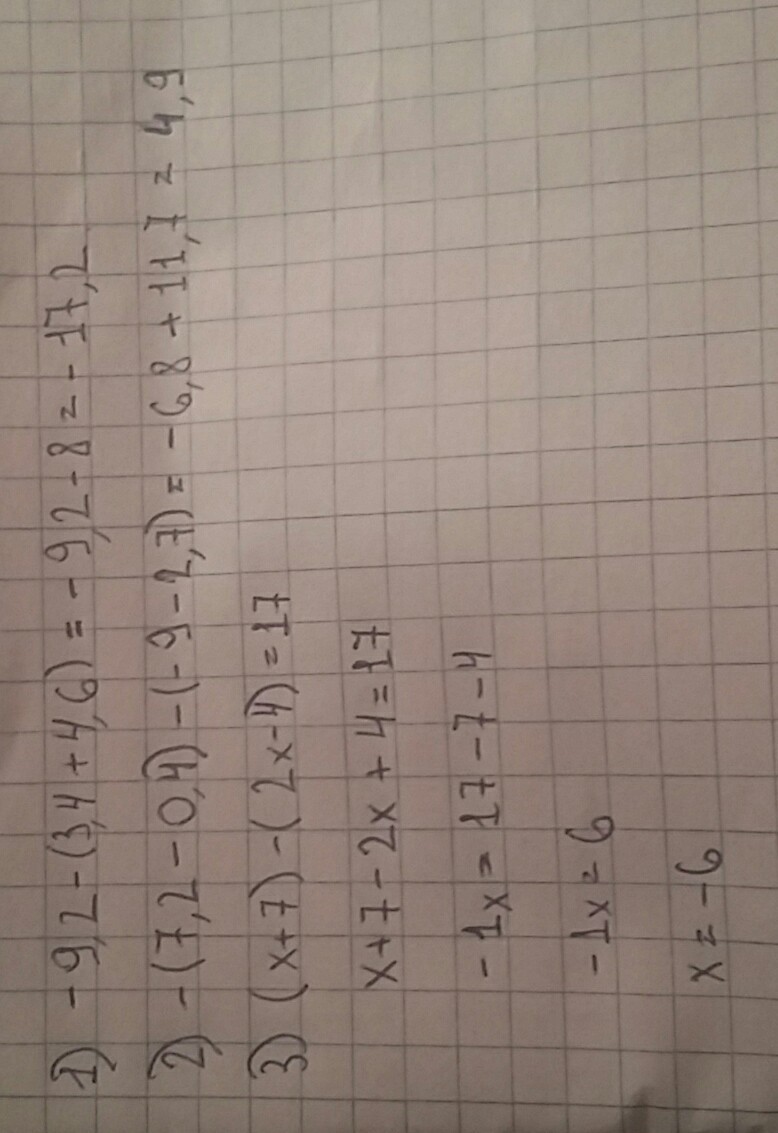 1) -9,2-(3,4+4,6)=-9,2-8=-17,2
2) -(7,2-0,4)-(-9-2,7)=-6,8+11,7=4,9
3) (x+7)-(2x-4)=17
x+7-2x+4=17
-1x=17-7-4
-1x=6
x=-6